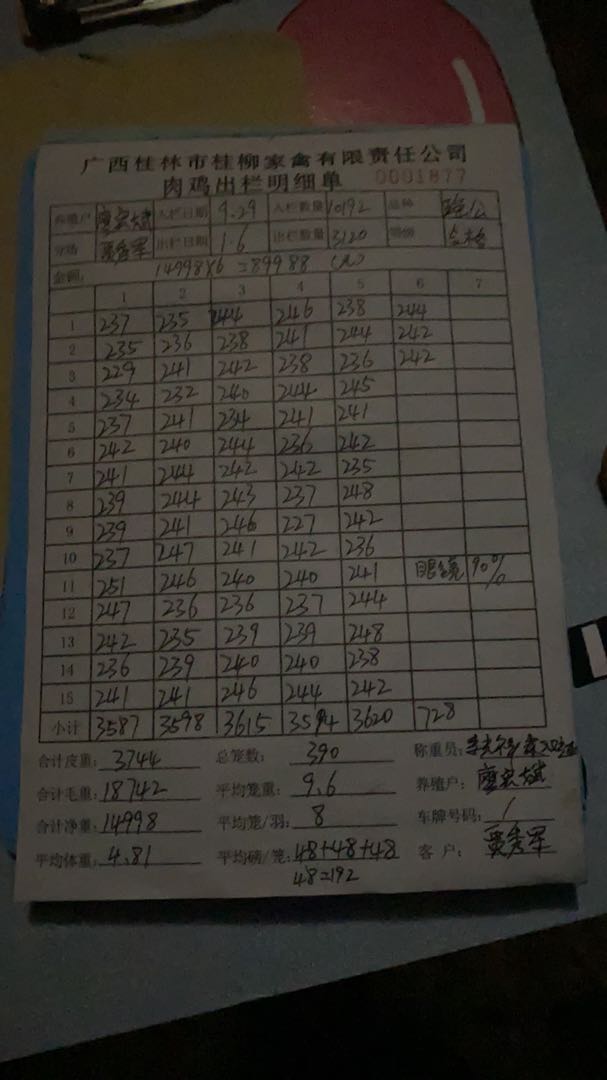 广西桂林市桂柳家禽有限责任公司
肉鸡出栏明细单 0001877
养殖户 入栏日期 9.29 入栏数量 10192 品种
出栏日期 1.6 出栏数量 3120 合格
金额: 14998×6=89988 (元)
1 2 3 4 5 6 7
1 237 235 244 246 238 244
2 235 236 238 241 244 242
3 229 241 242 238 236 242
4 234 232 240 244 245
5 237 241 234 241 241
6 242 240 244 236 242
7 241 244 242 242 235
8 239 244 243 237 248
9 239 241 246 227 242
10 237 247 241 242 236
11 251 246 240 240 241 眼镜 90%
12 247 236 236 237 244
13 242 235 239 239 248
14 236 239 240 240 238
15 241 241 246 244 242
小计 3587 3598 3615 3594 3620 728
合计皮重: 3744 总笼数: 390 称重员:
合计毛重: 18742 平均笼重: 9.6 养殖户:
合计净重: 14998 平均笼/羽: 8 车牌号码: 1
平均体重: 4.81 平均磅/笼: 48+48+48 客户:
48=192